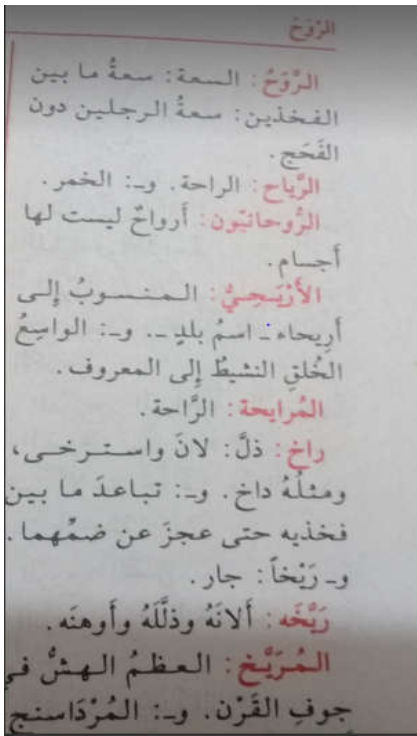 الرَّوَحُ
الرَّوَحُ: السعة: سعةُ ما بين
الفخذين: سعةُ الرجلين دون
الفَحَج.
الرِّياح: الراحة. و-: الخمر.
الرُّوحانيّون: أَرواحٌ ليست لها
أَجسام.
الأَرْيَحِيُّ: المنسوبُ إلى
أَرِيحاء - اسمُ بلدٍ -. و-: الواسِعُ
الخُلقِ النشيطُ إلى المعروف.
المُرايحة: الرَّاحة.
راخ: ذلَّ: لانَ واسترخى،
ومثلُهُ داخ. و-: تباعدَ ما بين
فخذيه حتى عجزَ عن ضمِّهما.
و- رَيْخاً: جار.
رَيَّخَه: أَلانَهُ وذلَّلَهُ وأَوهنَه.
المُرَيَّخ: العظمُ الهشُّ في
جوفِ القَرْن. و-: المُرْدَاسنج